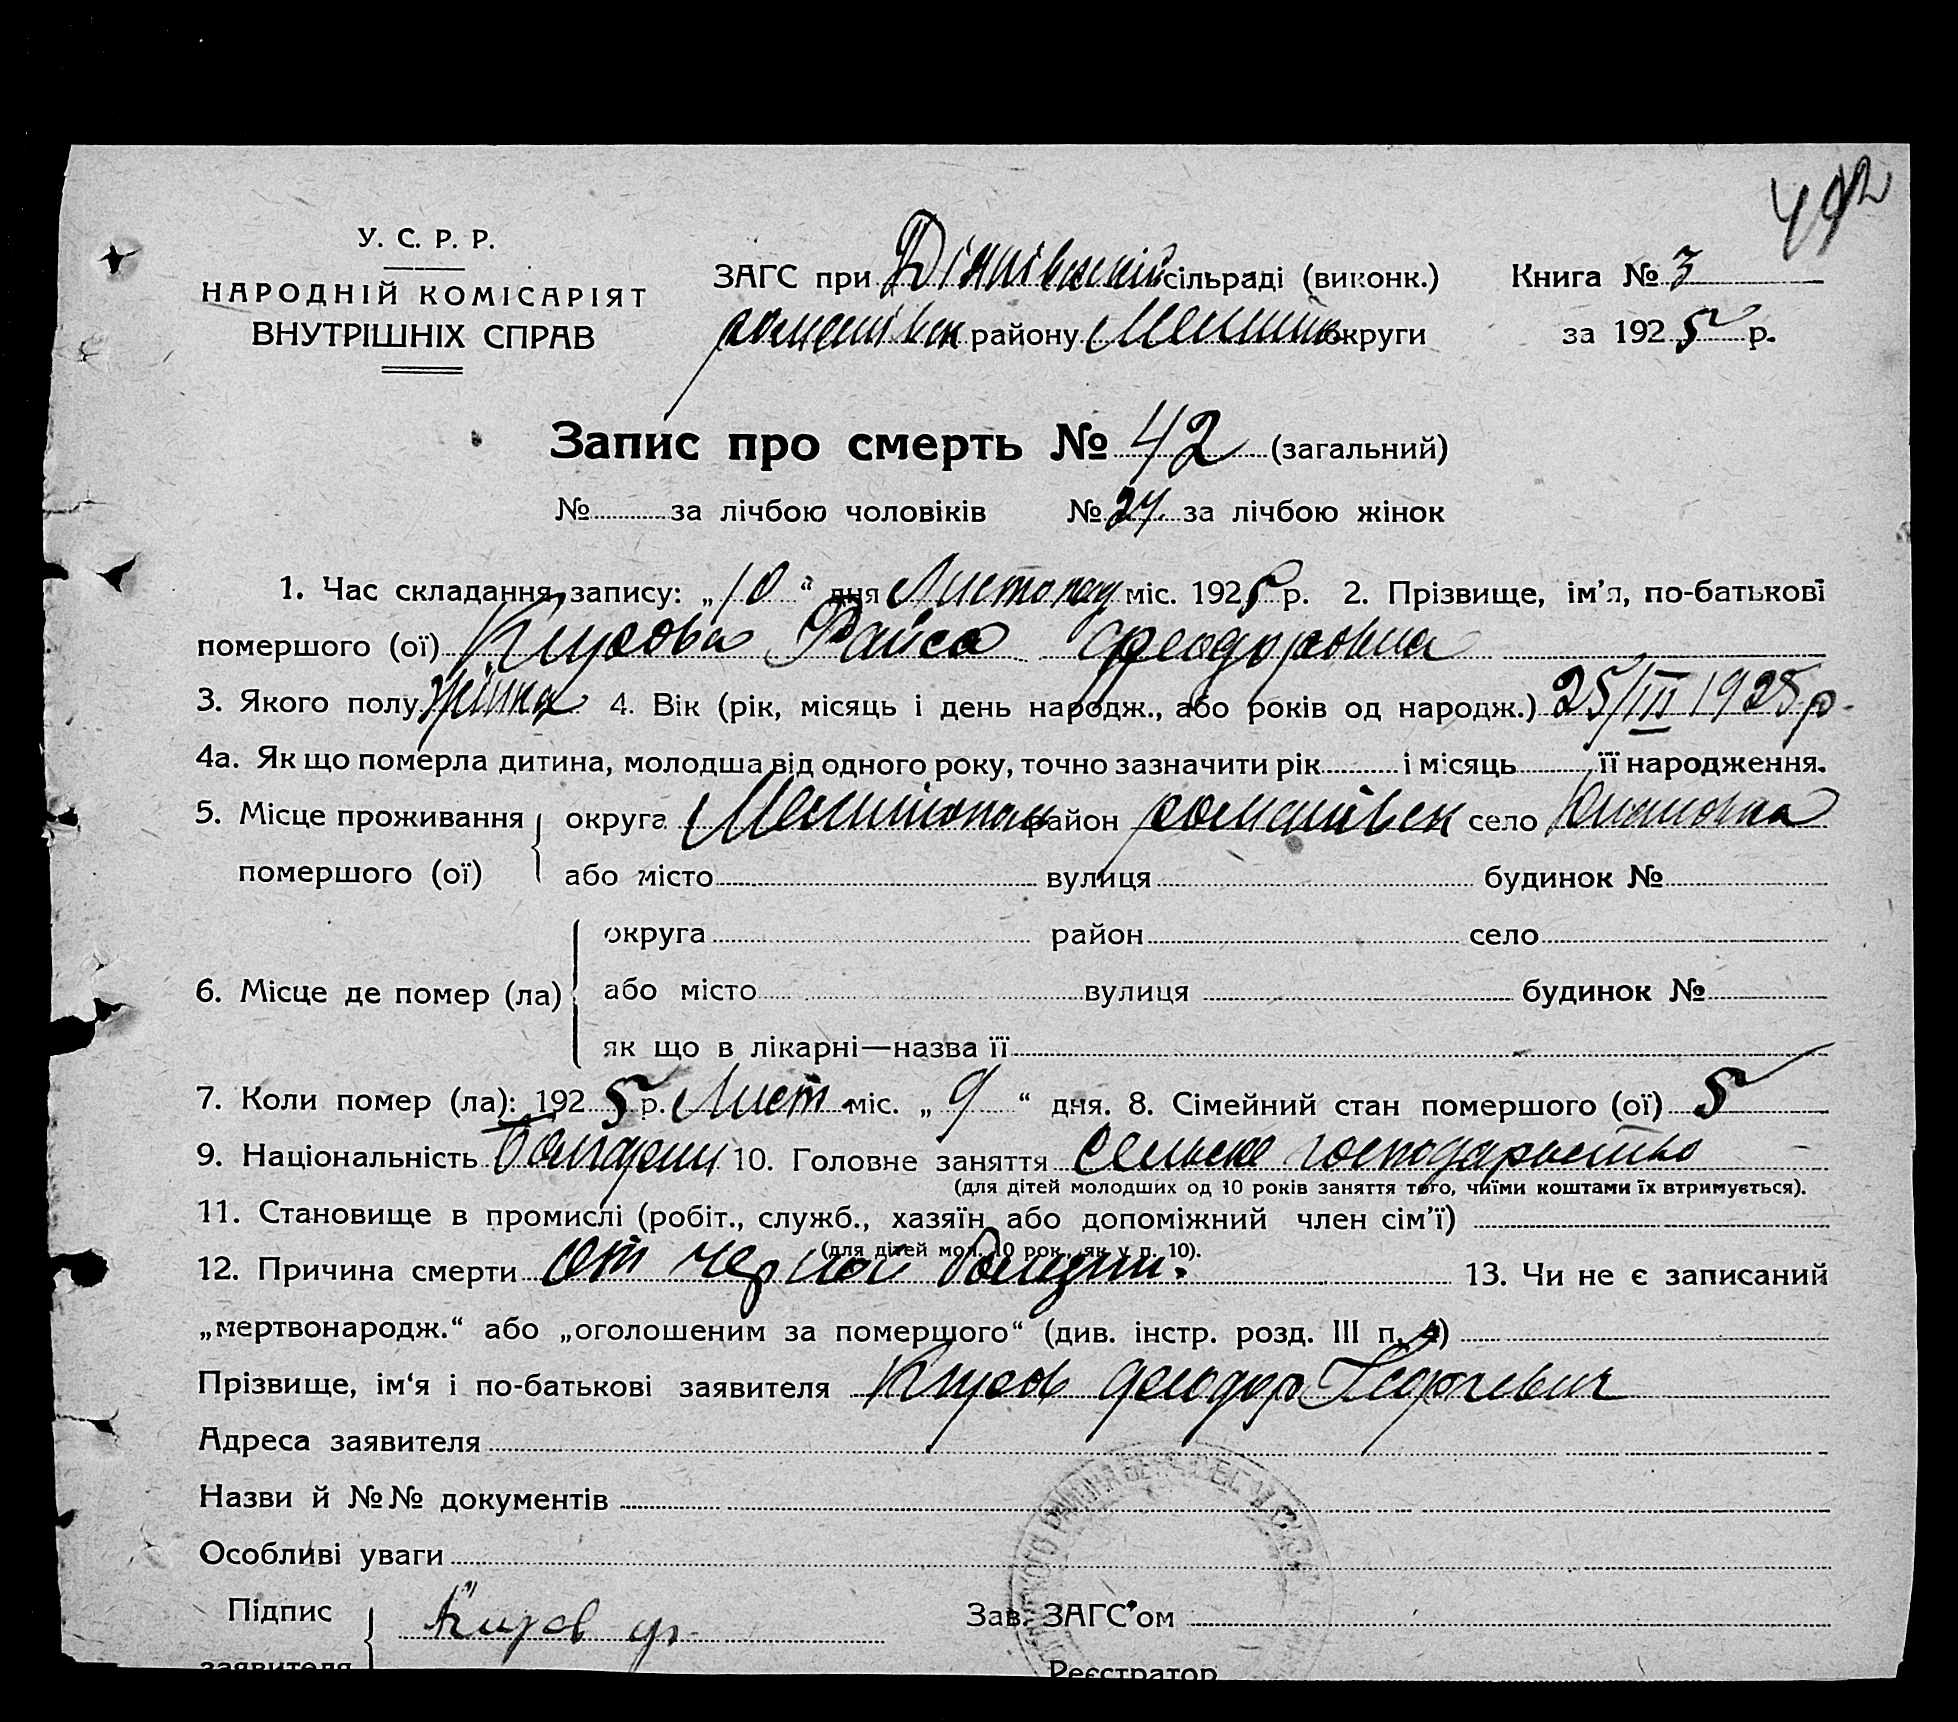 492
У. С. Р. Р.
НАРОДНІЙ КОМІСАРІЯТ
ВНУТРІШНІХ СПРАВ
ЗАГС при Діянівській сільраді (виконк.)
романівск району Мелитоп округи
Книга № 3
за 1925 р.
Запис про смерть № 42 (загальний)
№ за лічбою чоловіків № 24 за лічбою жінок
1. Час складання запису: „10“ дня Листопад міс. 1925 р. 2. Прізвище, ім’я, по-батькові
помершого (ої) Кирова Раиса Феодоровна
3. Якого полу жінка 4. Вік (рік, місяць і день народж., або років од народж.) 25/III 1925 р.
4а. Як що померла дитина, молодша від одного року, точно зазначити рік і місяць її народження.
5. Місце проживання округа Мелитопол район романівск село
помершого (ої) або місто вулиця будинок №
округа район село
6. Місце де помер (ла) або місто вулиця будинок №
як що в лікарні—назва її
7. Коли помер (ла): 1925 р. Лист. міс. „9“ дня. 8. Сімейний стан помершого (ої) 5
9. Національність Болгарин 10. Головне заняття Сельске господарьство
(для дітей молодших од 10 років заняття того, чиїми коштами їх втримується).
11. Становище в промислі (робіт., служб., хазяїн або допоміжний член сім’ї)
(для дітей мол. 10 рок., як у п. 10).
12. Причина смерти От черной болезни. 13. Чи не є записаний
„мертвонародж.“ або „оголошеним за помершого“ (див. інстр. розд. III п. 4)
Прізвище, ім‘я і по-батькові заявителя Киров Феодор Георгиевич
Адреса заявителя
Назви й №№ документів
Особливі уваги
Підпис Киров Ф. Зав. ЗАГС’ом
заявителя Реєстратор